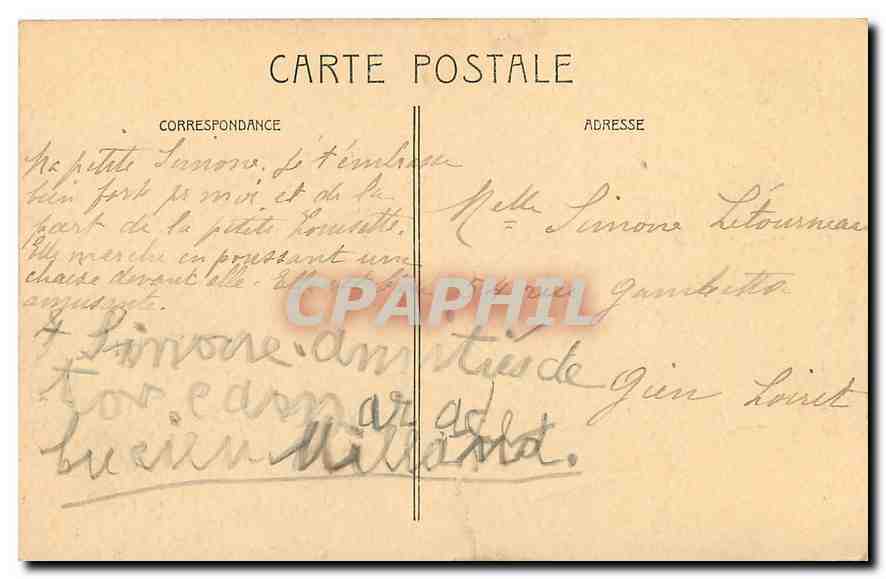 CARTE POSTALE
CORRESPONDANCE
Ma petite Simone. Je t'embrasse
bien fort pr moi et de la
part de la petite Louisette.
Elle marche en poussant une
chaise devant elle. Elle est bien
amusante.
+ Simone. amitiés de
ton camarade
Lucien Millard.
ADRESSE
Melle Simone Létourneau
54 rue Gambetta
Gien Loiret
CPAPHIL